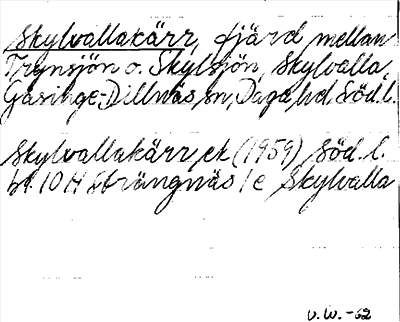 Skylvallakärr, fjärd mellan
Trynsjön o. Skylsjön, Skylvalla,
Gåsinge-Dillnäs sn, Daga hd. Söd. l.
Skylvallakärr, ek (1959) Söd. l.
bl. 10 H Strängnäs /e Skylvalla
v. W. -62